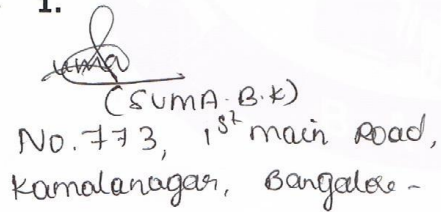 1.
uma
(SUMA.B.K)
No.773, 1st main Road,
Kamalanagar, Bangalore -